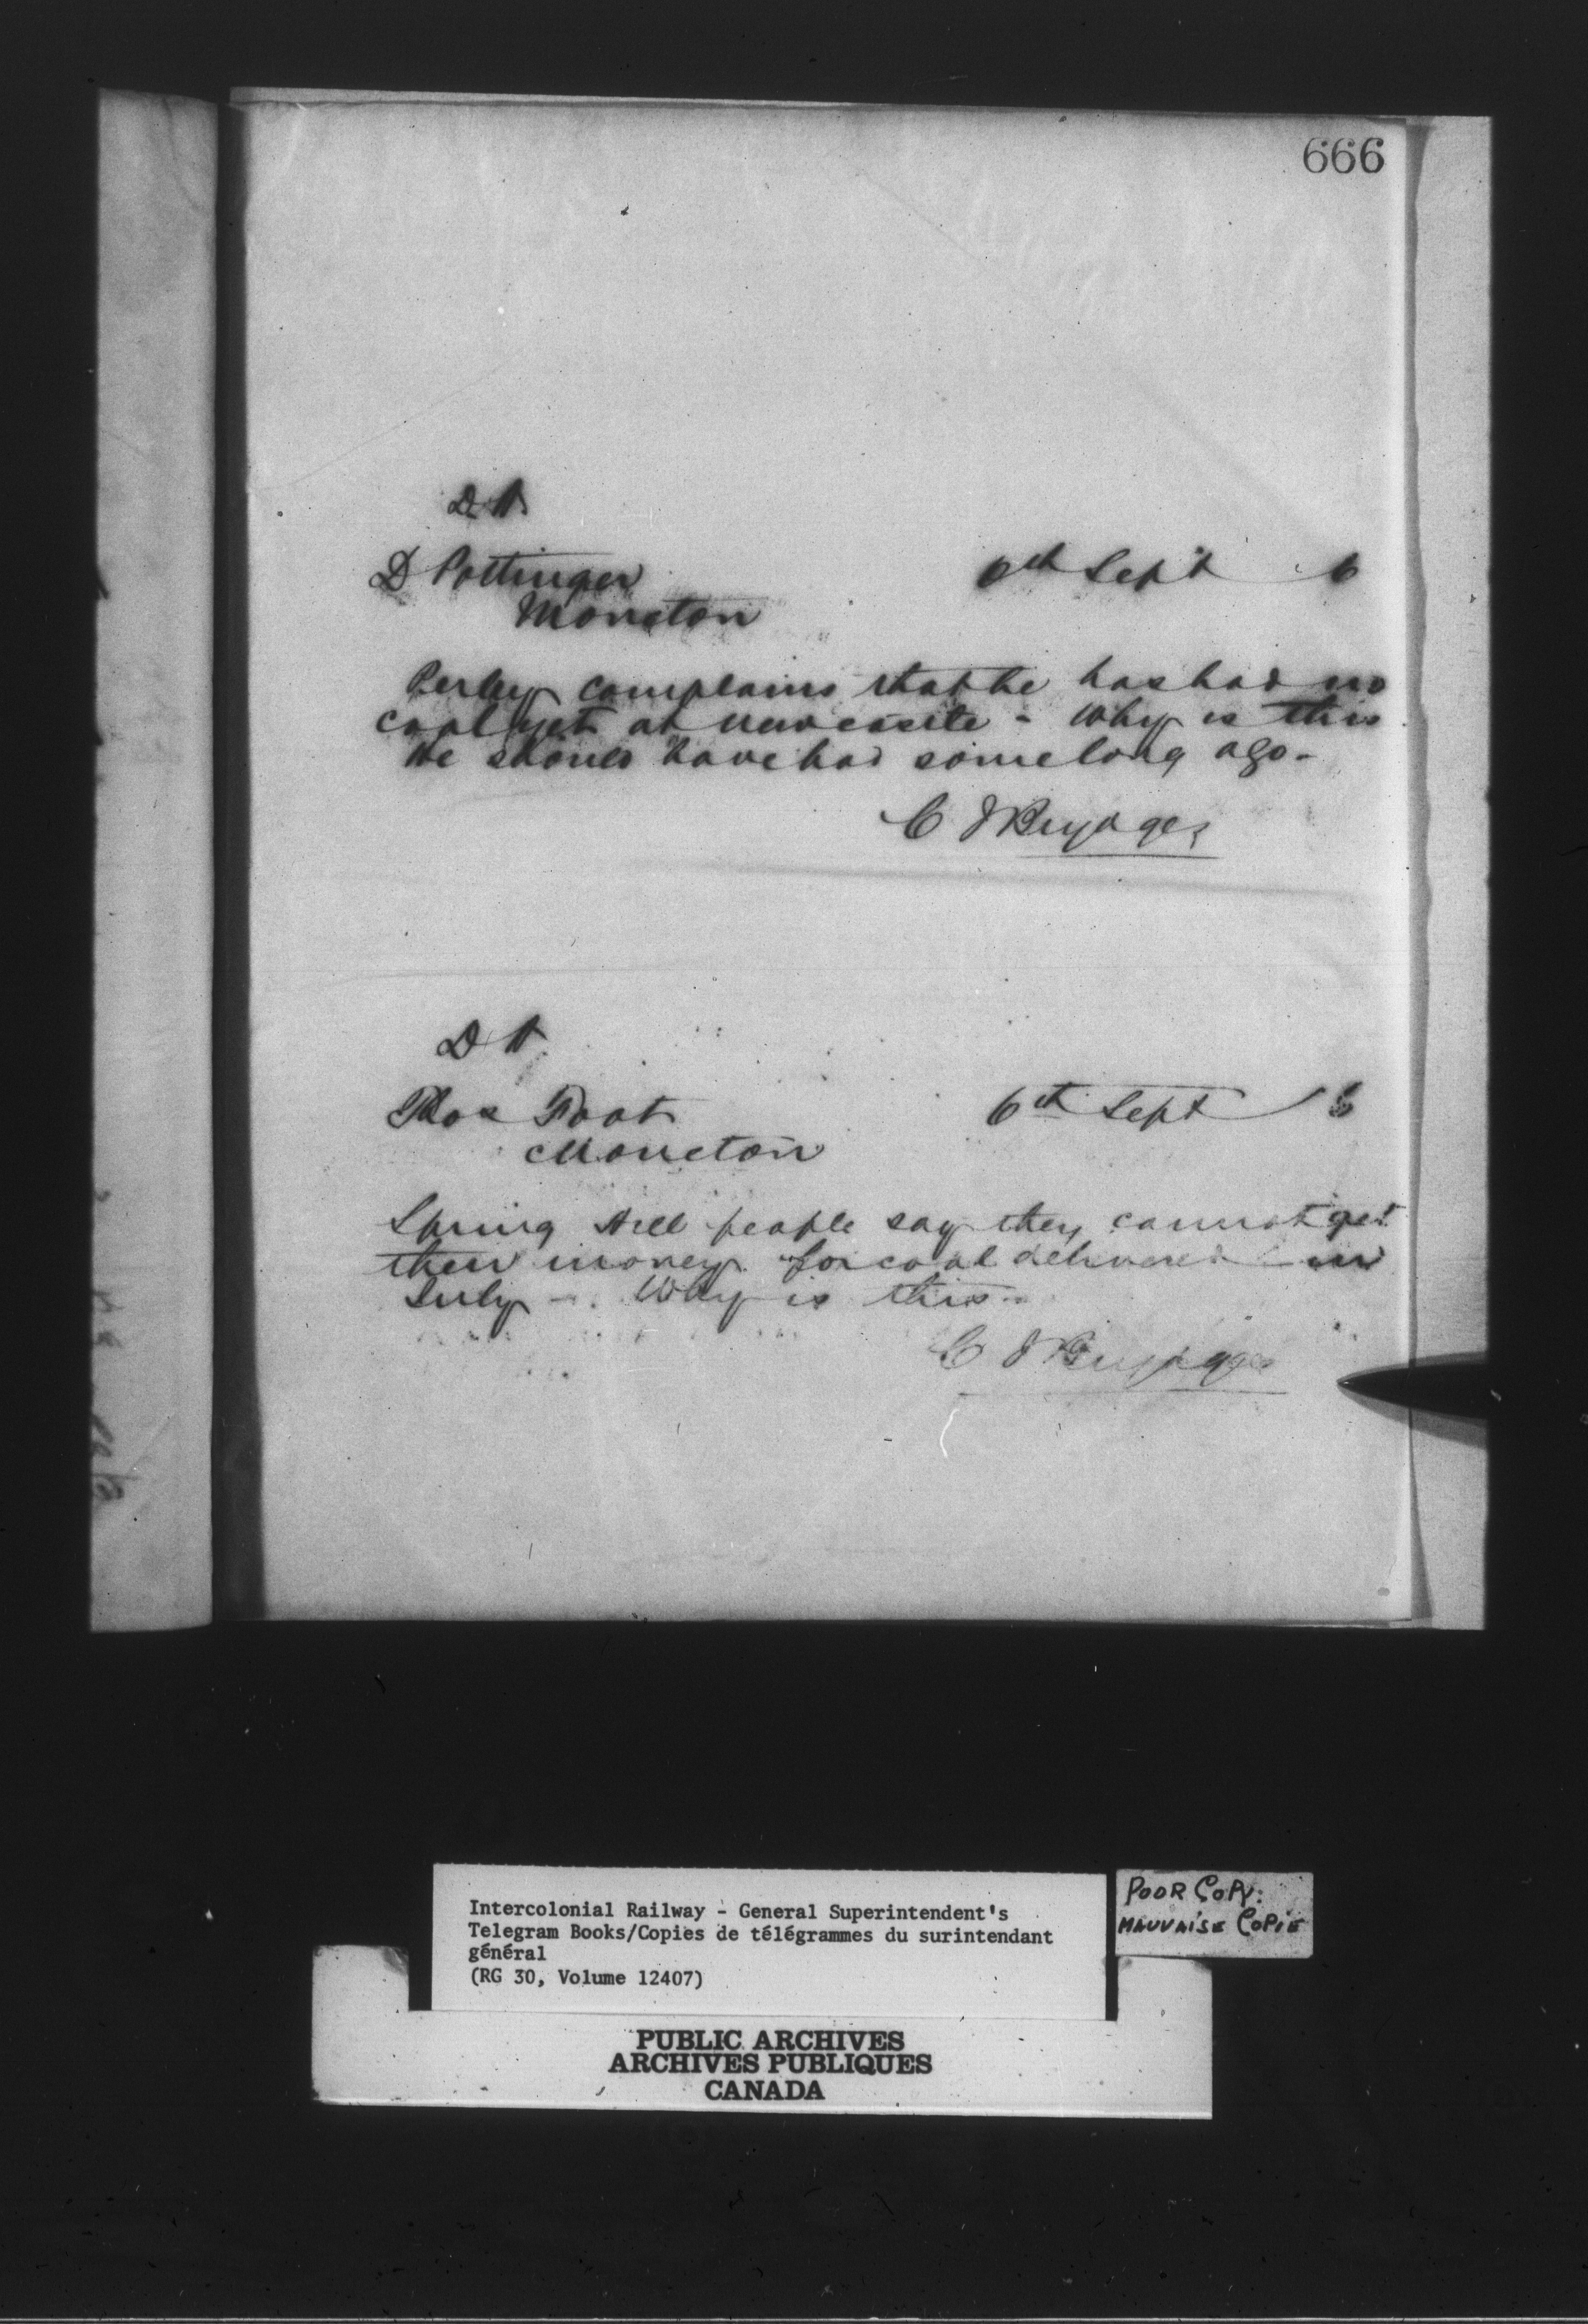 666
D H
D Pottinger 6th Sept 6
Moncton
Perley complains that he has had no
coal yet at newcastle - Why is this
He should have had some long ago -
C J Brydges
D H
Thos Foot 6th Sept 6
Moncton
Spring Hill people say they cannot get
their money for coal delivered in
July - Why is this -
C J Brydges
Intercolonial Railway - General Superintendent's
Telegram Books/Copies de télégrammes du surintendant
général
(RG 30, Volume 12407)
POOR COPY.
MAUVAISE COPIE
PUBLIC ARCHIVES
ARCHIVES PUBLIQUES
CANADA